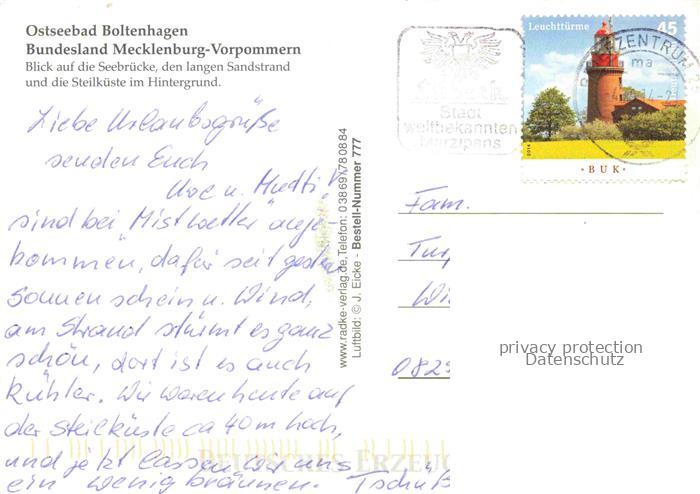 Ostseebad Boltenhagen
Bundesland Mecklenburg-Vorpommern
Blick auf die Seebrücke, den langen Sandstrand
und die Steilküste im Hintergrund.
Liebe Urlaubsgrüße
senden Euch
Uwe u. Mutti,
sind bei „Mistwetter" ange-
kommen, dafür seit gestern
Sonnenschein u. Wind,
am Strand stürmt es ganz
schön, dort ist es auch
kühler. Wir waren heute auf
der Steilküste ca 40 m hoch,
und jetzt lassen wir uns
ein wenig bräunen. Tschüß
www.radke-verlag.de, Telefon: 03869/780884
Luftbild: © J. Eicke - Bestell-Nummer 777
Stadt
weltbekannten
Marzipans
BRIEFZENTRUM
Leuchttürme 45
2014
· BUK ·
Fam.
082
privacy protection
Datenschutz
DEUTSCHES ERZEUG